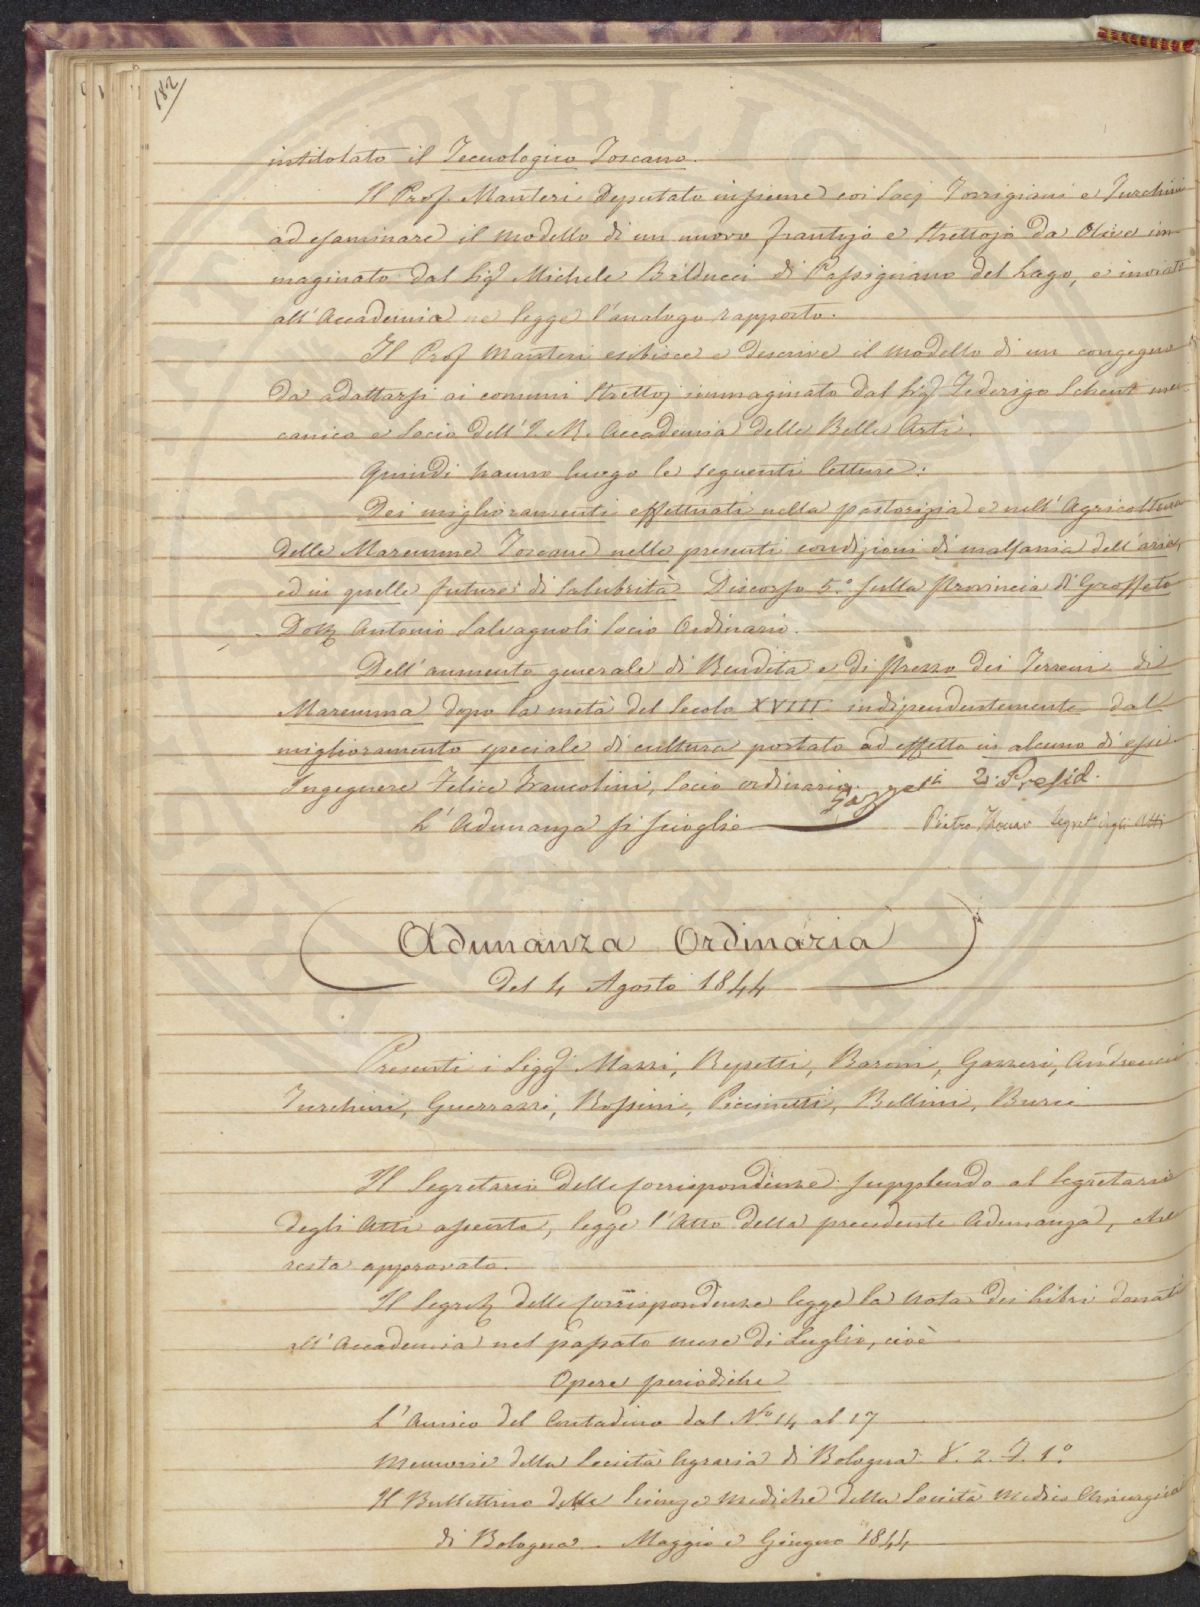 182
intitolato il Tecnologico Toscano.
Il Prof. Manteri Deputato insieme coi Socj Torrigiani e Turchini
ad esaminare il modello di un nuovo frantojo e Strettojo da Olive im-
maginato dal Sig. Michele Balducci di Passignano del Lago, e inviato
all'Accademia ne legge l'analogo rapporto.
Il Prof. Manteri esibisce e descrive il modello di un congegno
da adattarsi ai comuni Strettoj immaginato dal Sig. Federigo Schent mec-
canico e Socio dell'I. R. Accademia delle Belle Arti.
Quindi hanno luogo le seguenti letture:
Dei miglioramenti effettuati nella pastorizia e nell'Agricoltura
delle Maremme Toscane nelle presenti condizioni di malsania dell'aria,
ed in quelle future di Salubrità Discorso 5.° sulla Provincia di Grosseto
Dott. Antonio Salvagnoli Socio Ordinario.
Dell'aumento generale di Rendita e di Prezzo dei Terreni di
Maremma dopo la metà del Secolo XVIII indipendentemente dal
miglioramento speciale di cultura portato ad effetto in alcuno di essi.
Ingegnere Felice Francolini, Socio ordinario.
Gazzeri 2: Presid.
L'Adunanza si scioglie
Pietro Segret. degli Atti
Adunanza Ordinaria
del 4 Agosto 1844
Presenti i Sigg. Mazzi, Repetti, Baroni, Gazzeri, Andreucci
Turchini, Guerrazzi, Rossini, Piccinetti, Bellini, Burci
Il Segretario delle Corrispondenze supplendo al Segretario
degli Atti assente, legge l'Atto della precedente Adunanza, che
resta approvato.
Il Segret. delle Corrispondenze legge la nota dei Libri donati
all'Accademia nel passato mese di Luglio, cioè
Opere periodiche
L'Amico del Contadino dal N.° 14 al 17
Memorie della Società Agraria di Bologna V. 2. F. 1.°
Il Bullettino delle Scienze Mediche della Società Medico Chirurgica
di Bologna. Maggio e Giugno 1844